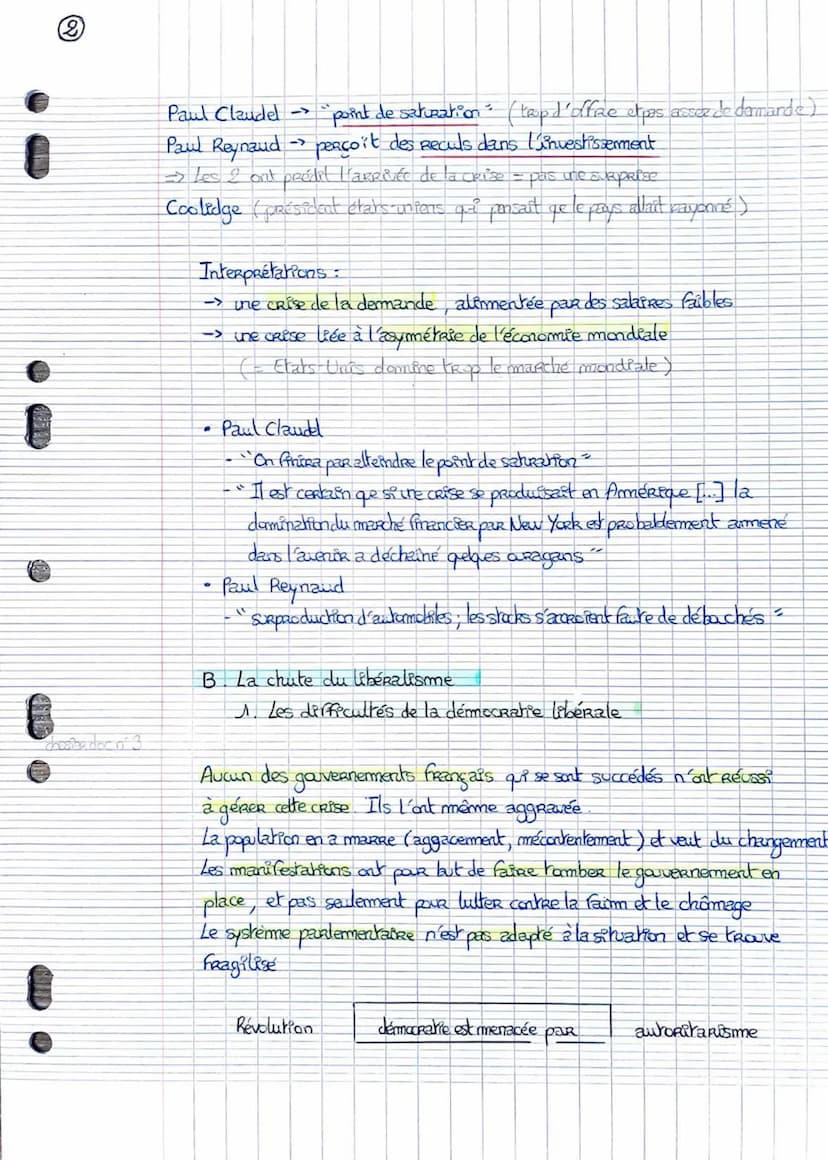 2
Paul Claudel -> "point de saturation" (trop d'offre et pas assez de demande)
Paul Reynaud -> perçoit des reculs dans l'investissement
=> Les 2 ont prédit l'arrivée de la crise = pas une surprise
Coolidge (président états-uniens qui pensait que le pays allait rayonné)
Interprétations :
-> une crise de la demande, alimentée par des salaires faibles
-> une crise liée à l'asymétrie de l'économie mondiale
(= Etats-Unis domine trop le marché mondiale)
• Paul Claudl
- "On finira par atteindre le point de saturation"
- "Il est certain que si une crise se produisait en Amérique [...] la
domination du marché financier par New York est probablement amené
dans l'avenir a déchainé quelques ouragans"
• Paul Reynaud
- "surproduction d'automobiles ; les stocks s'accroient faute de débochés"
B. La chute du libéralisme
1. Les difficultés de la démocratie libérale
doc n°3
Aucun des gouvernements français qui se sont succédés n'ont réussi
à gérer cette crise. Ils l'ont même aggravée.
La population en a marre (aggacement, mécontentement) et veut du changement
Les manifestations ont pour but de faire tomber le gouvernement en
place, et pas seulement pour lutter contre la faim et le chômage
Le système parlementaire n'est pas adapté à la situation et se trouve
fragilisé
Révolution démocratie est menacée par autoritarisme